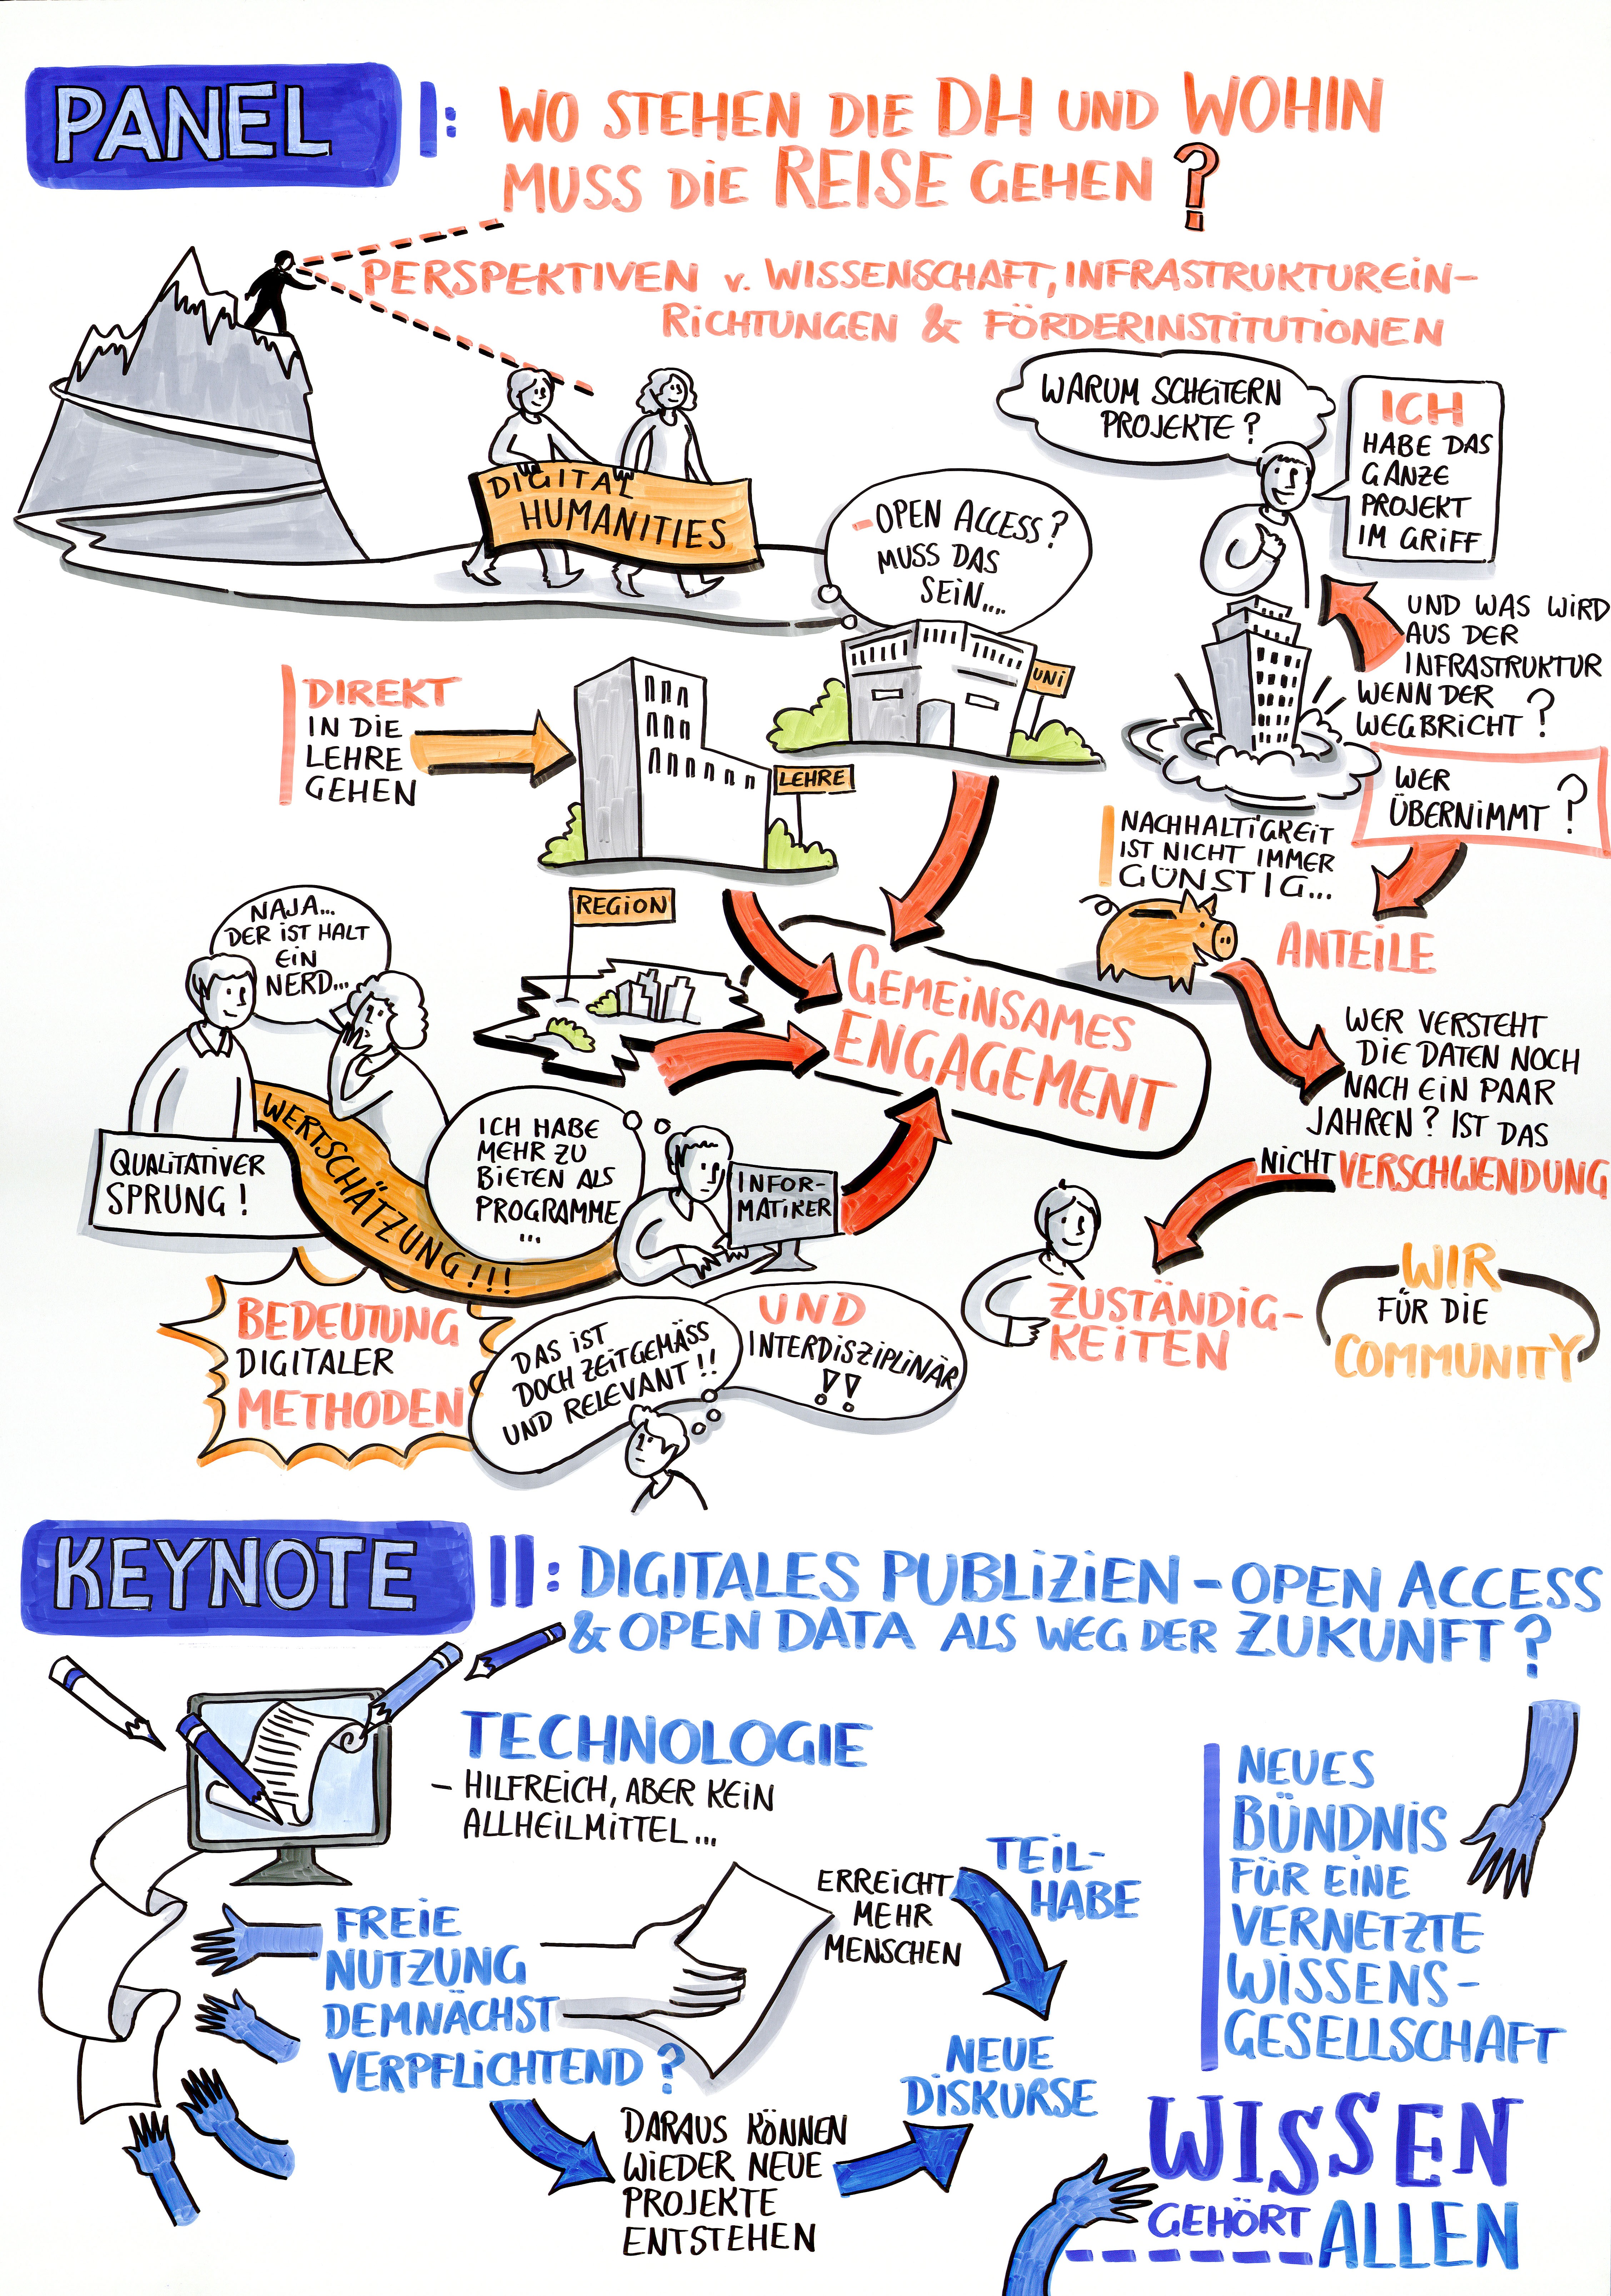 PANEL I:
WO STEHEN DIE DH UND WOHIN
MUSS DIE REISE GEHEN?
PERSPEKTIVEN v. WISSENSCHAFT, INFRASTRUKTUREIN-
RICHTUNGEN & FÖRDERINSTITUTIONEN
DIGITAL
HUMANITIES
WARUM SCHEITERN
PROJEKTE?
ICH
HABE DAS
GANZE
PROJEKT
IM GRIFF
- OPEN ACCESS?
MUSS DAS
SEIN....
UNI
UND WAS WIRD
AUS DER
INFRASTRUKTUR
WENN DER
WEGBRICHT?
DIREKT
IN DIE
LEHRE
GEHEN
LEHRE
WER
ÜBERNIMMT?
NACHHALTIGKEIT
IST NICHT IMMER
GÜNSTIG...
ANTEILE
REGION
GEMEINSAMES
ENGAGEMENT
NAJA...
DER IST HALT
EIN
NERD...
QUALITATIVER
SPRUNG!
WERTSCHÄTZUNG!!!
ICH HABE
MEHR ZU
BIETEN ALS
PROGRAMME
...
INFOR-
MATIKER
WER VERSTEHT
DIE DATEN NOCH
NACH EIN PAAR
JAHREN? IST DAS
NICHT VERSCHWENDUNG
ZUSTÄNDIG-
KEITEN
WIR
FÜR DIE
COMMUNITY
BEDEUTUNG
DIGITALER
METHODEN
DAS IST
DOCH ZEITGEMÄSS
UND RELEVANT!!
UND
INTERDISZIPLINÄR
!!
KEYNOTE II: DIGITALES PUBLIZIEN - OPEN ACCESS
& OPEN DATA ALS WEG DER ZUKUNFT?
TECHNOLOGIE
- HILFREICH, ABER KEIN
ALLHEILMITTEL...
FREIE
NUTZUNG
DEMNÄCHST
VERPFLICHTEND?
ERREICHT
MEHR
MENSCHEN
TEIL-
HABE
NEUE
DISKURSE
DARAUS KÖNNEN
WIEDER NEUE
PROJEKTE
ENTSTEHEN
NEUES
BÜNDNIS
FÜR EINE
VERNETZTE
WISSENS-
GESELLSCHAFT
WISSEN
GEHÖRT ALLEN